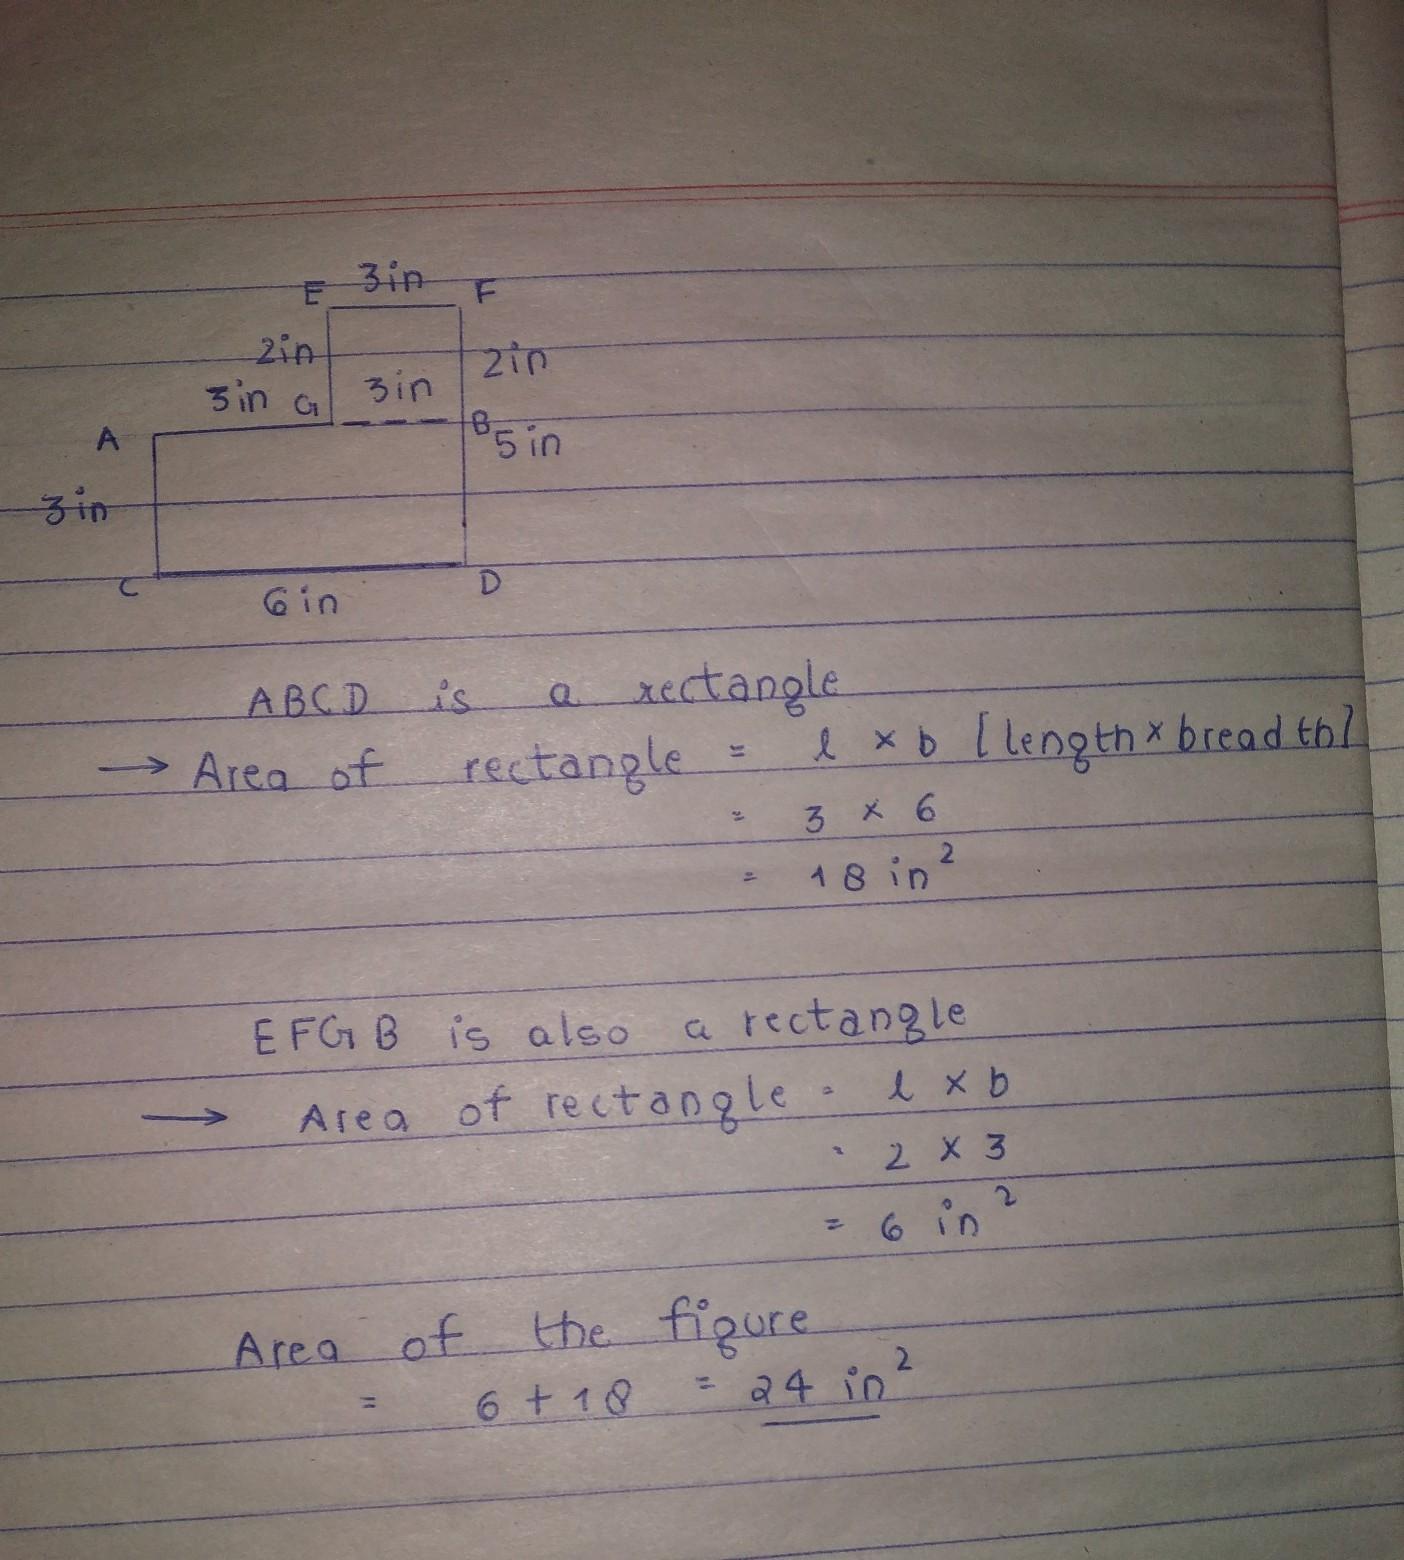 3in
E F
2in 2in
3in G 3in
A B
5in
3in
C D
6in
ABCD is a rectangle
→ Area of rectangle = l × b [length × breadth]
= 3 × 6
= 18 in²
EFGB is also a rectangle
→ Area of rectangle = l × b
= 2 × 3
= 6 in²
Area of the figure
= 6 + 18 = 24 in²